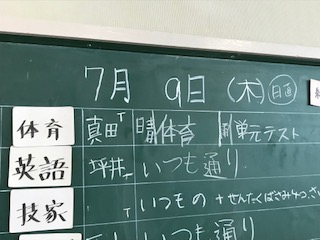 7月 9日(木) 日直
体育 真田T 晴/体育 雨/単元テスト
英語 坪井T いつも通り
技家 T いつもの+せんたくばさみ4つ、
いつも通り